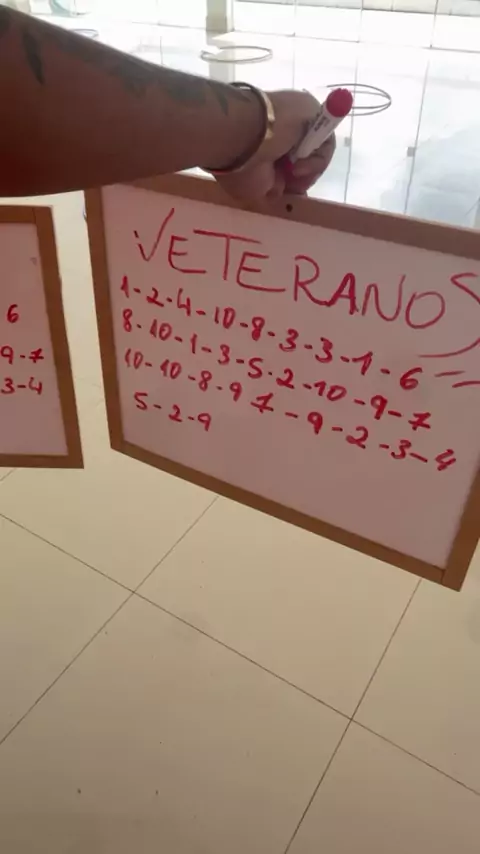 6
9-7
3-4
VETERANOS
1-2-4-10-8-3-3-1-6
8-10-1-3-5-2-10-9-7
10-10-8-9 7-9-2-3-4
5-2-9